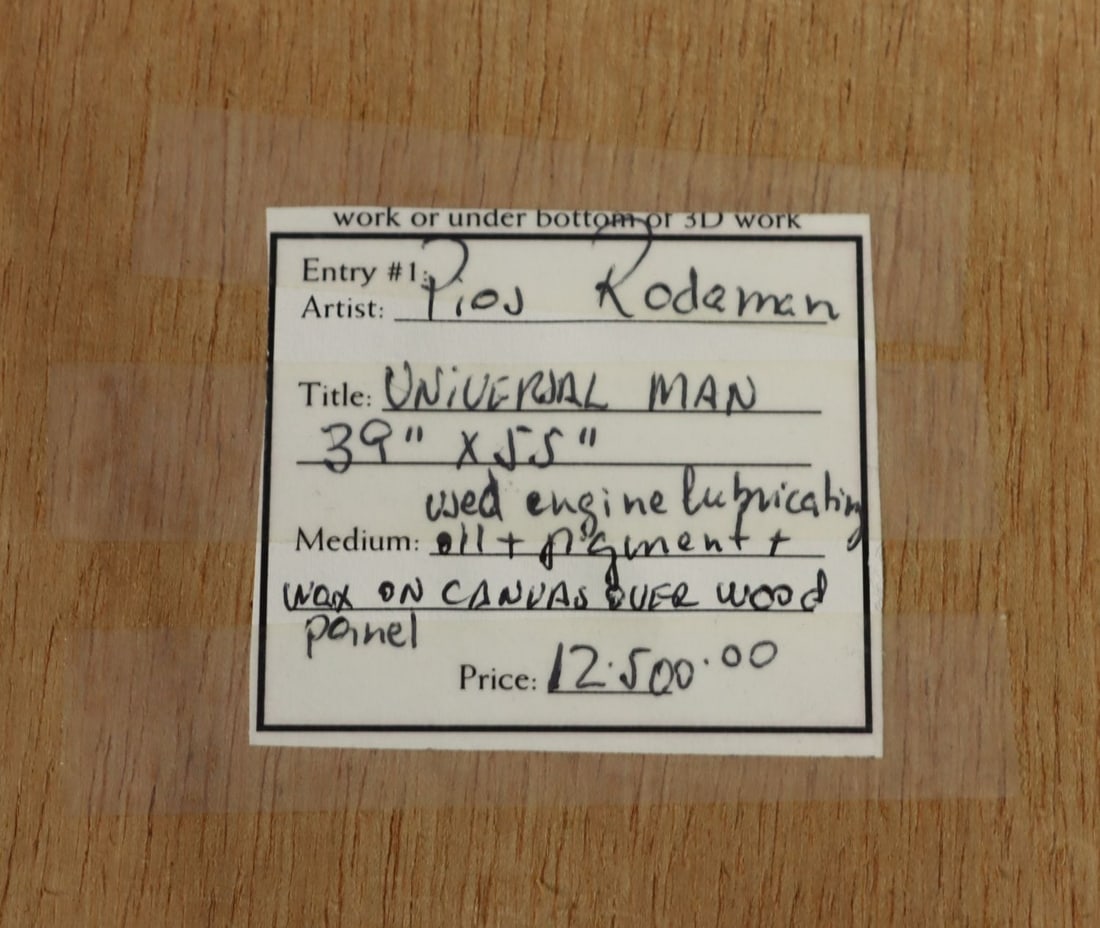 work or under bottom of 3D work
Entry #1:
Artist: Pios Rodaman
Title: UNiVERSAL MAN
39" X 55"
used engine lubricating
Medium: oil + pigment +
wax ON CANVAS OVER wood
panel
Price: 12.500.00